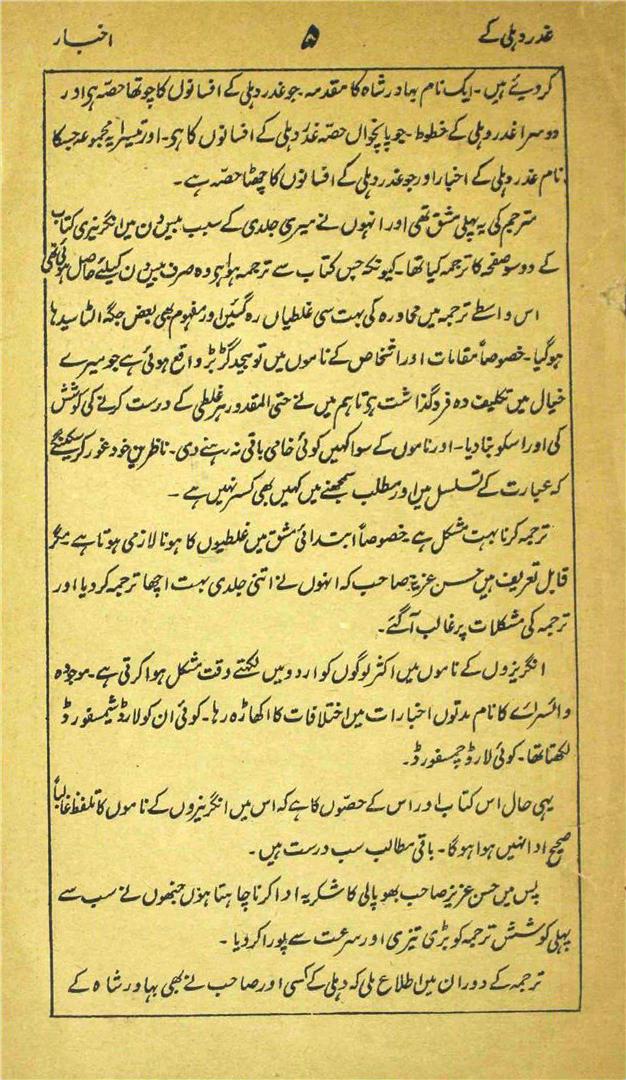 غدر دہلی کے ۵ اخبار
کردیئے ہیں۔ ایک نام بہادر شاہ کا مقدمہ جو غدر دہلی کے افسانوں کا چوتھا حصہ ہے اور
دوسرا غدر دہلی کے خطوط۔ جو پانچواں حصہ غدر دہلی کے افسانوں کا ہے۔ اور تیسرا یہ مجموعہ جسکا
نام غدر دہلی کے اخبار اور جو غدر دہلی کے افسانوں کا چھٹا حصّہ ہے۔
مترجم کی یہ پہلی مشق تھی اور انہوں نے میری جلدی کے سبب بیس دن میں انگریزی کتاب
کے دو سو صفحہ کا ترجمہ کیا تھا۔ کیونکہ جس کتاب سے ترجمہ ہوا ہے وہ صرف بیس دن کیلئے حاصل ہوئی تھی
اس واسطے ترجمہ میں محاورہ کی بہت سی غلطیاں رہ گئیں اور مفہوم بھی بعض جگہ الٹا سیدھا
ہوگیا۔ خصوصاً مقامات اور اشخاص کے ناموں میں تو بیحد گڑبڑ واقع ہوئی ہے جو میرے
خیال میں تکلیف دہ فروگذاشت ہے تاہم میں نے حتی المقدور ہر غلطی کے درست کرنے کی کوشش
کی اور اسکو بنا دیا۔ اور ناموں کے سوا کہیں کوئی خامی باقی نہ رہنے دی۔ ناظرین خود غور کرسکینگے
کہ عبارت کے تسلسل میں اور مطلب سمجھنے میں کہیں بھی کسر نہیں ہے۔
ترجمہ کرنا بہت مشکل ہے۔ خصوصاً ابتدائی مشق میں غلطیوں کا ہونا لازمی ہوتا ہے مگر
قابل تعریف ہیں حسن عزیز صاحب کہ انہوں نے اتنی جلدی بہت اچھا ترجمہ کر دیا اور
ترجمہ کی مشکلات پر غالب آگئے۔
انگریزوں کے ناموں میں اکثر لوگوں کو اردو میں لکھتے وقت مشکل ہوا کرتی ہے۔ موجودہ
وائسرائے کا نام مدتوں اخبارات میں اختلافات کا اکھاڑہ رہا۔ کوئی ان کو لارڈ شیمسفورڈ
لکھتا تھا۔ کوئی لارڈ چمسفورڈ۔
یہی حال اس کتاب اور اس کے حصّوں کا ہے کہ اس میں انگریزوں کے ناموں کا تلفظ غالباً
صحیح ادا نہیں ہوا ہوگا۔ باقی مطالب سب درست ہیں۔
پس میں حسن عزیز صاحب بھوپالی کا شکریہ ادا کرنا چاہتا ہوں جنھوں نے سب سے
پہلی کوشش ترجمہ کو بڑی تیزی اور سرعت سے پورا کر دیا۔
ترجمہ کے دوران میں اطلاع ملی کہ دہلی کے کسی اور صاحب نے بھی بہادر شاہ کے